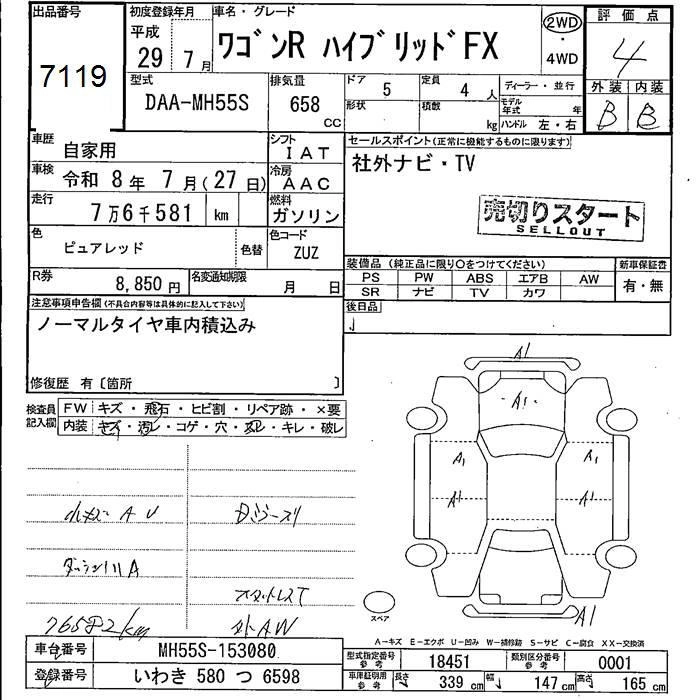 出品番号
7119
初度登録年月
平成
29 7 月
車名・グレード
ワゴンR ハイブリッドFX
2WD
・
4WD
評価点
4
外装 内装
B B
型式
DAA-MH55S
排気量
658
CC
ドア 5 定員 4 人
形状 積数 kg
ディーラー・並行
モデル年式 年
ハンドル 左・右
車歴
自家用
シフト
IAT
車検
令和 8 年 7 月(27 日)
冷房
AAC
走行
7万6千581 km
燃料
ガソリン
色
ピュアレッド
色替
色コード
ZUZ
R券
8,850 円
名変通知期限
月 日
セールスポイント(正常に機能するものに限ります)
社外ナビ・TV
売切りスタート
SELLOUT
装備品(純正品に限り○をつけてください)
PS PW ABS エアB AW
SR ナビ TV カワ
新車保証書
有・無
後日品
注意事項申告欄(不具合内容等は具体的に記入して下さい)
ノーマルタイヤ車内積込み
修復歴 有〔箇所 〕
検査員
記入欄
FW キズ・飛石・ヒビ割・リペア跡・×要
内装 キズ・汚レ・コゲ・穴・スレ・キレ・破レ
A U
A
76582km
AW
A1
A1
A1 A1
A1 A1
A1
スペア
A-キズ E-エクボ U-凹み W-補修跡 S-サビ C-腐食 XX-交換済
車台番号 MH55S-153080
登録番号 いわき 580 つ 6598
型式指定番号
参考
18451
類別区分番号
参考
0001
車庫証明用
参考
長さ 339 cm 幅 147 cm 高さ 165 cm